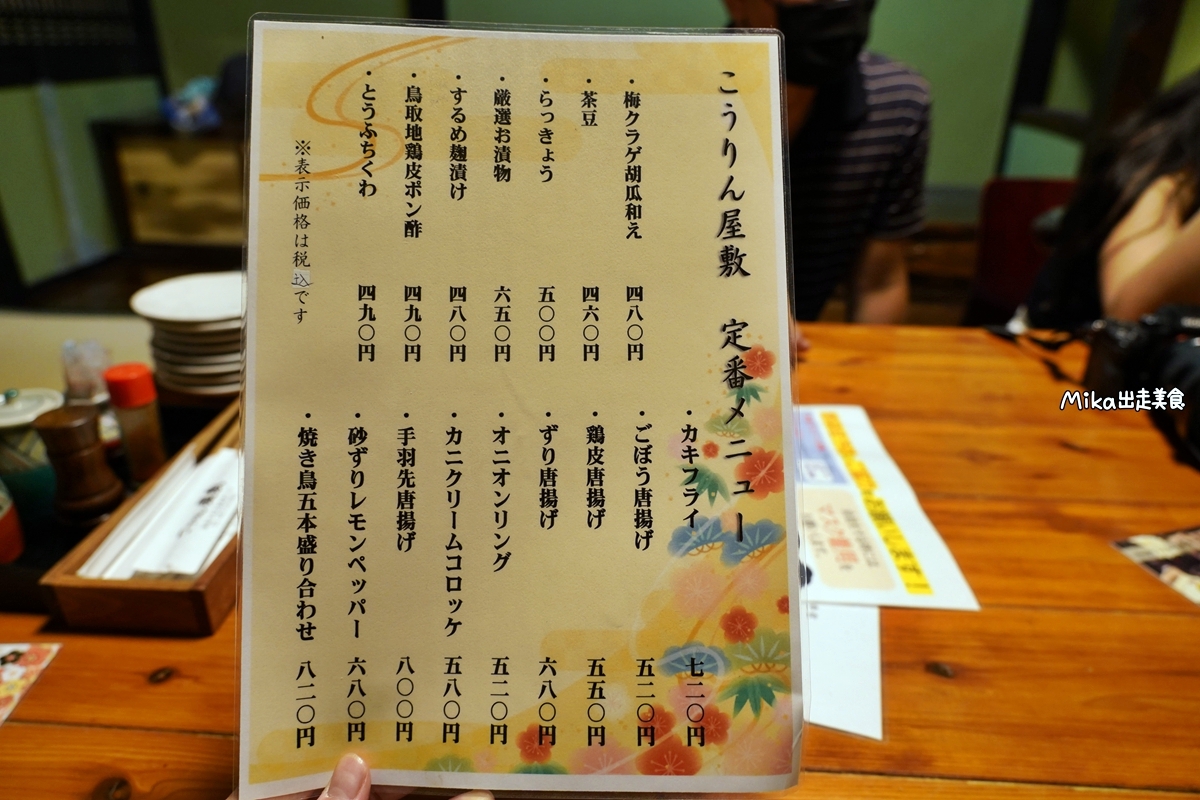 こうりん屋敷 定番メニュー
・梅クラゲ胡瓜和え 四八〇円
・茶豆 四六〇円
・らっきょう 五〇〇円
・厳選お漬物 六五〇円
・するめ麹漬け 四八〇円
・鳥取地鶏皮ポン酢 四九〇円
・とうふちくわ 四九〇円
※表示価格は税込です
・カキフライ 七二〇円
・ごぼう唐揚げ 五二〇円
・鶏皮唐揚げ 五五〇円
・ずり唐揚げ 六八〇円
・オニオンリング 五二〇円
・カニクリームコロッケ 五八〇円
・手羽先唐揚げ 八〇〇円
・砂ずりレモンペッパー 六八〇円
・焼き鳥五本盛り合わせ 八二〇円
Mika出走美食